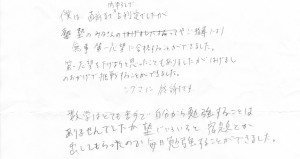 内申そして
僕は 直前まで 判定でしたが
塾のみなさんの ご指導により
無事第一志望に合格することができました。
第一志望を下げようと思ったこともありましたが はげまし
のおかげで挑戦することができました。
数学はとても苦手で 自分から勉強することは
ありませんでしたが 塾にいくと 宿題とか
出してもらったので 毎日勉強することができました。